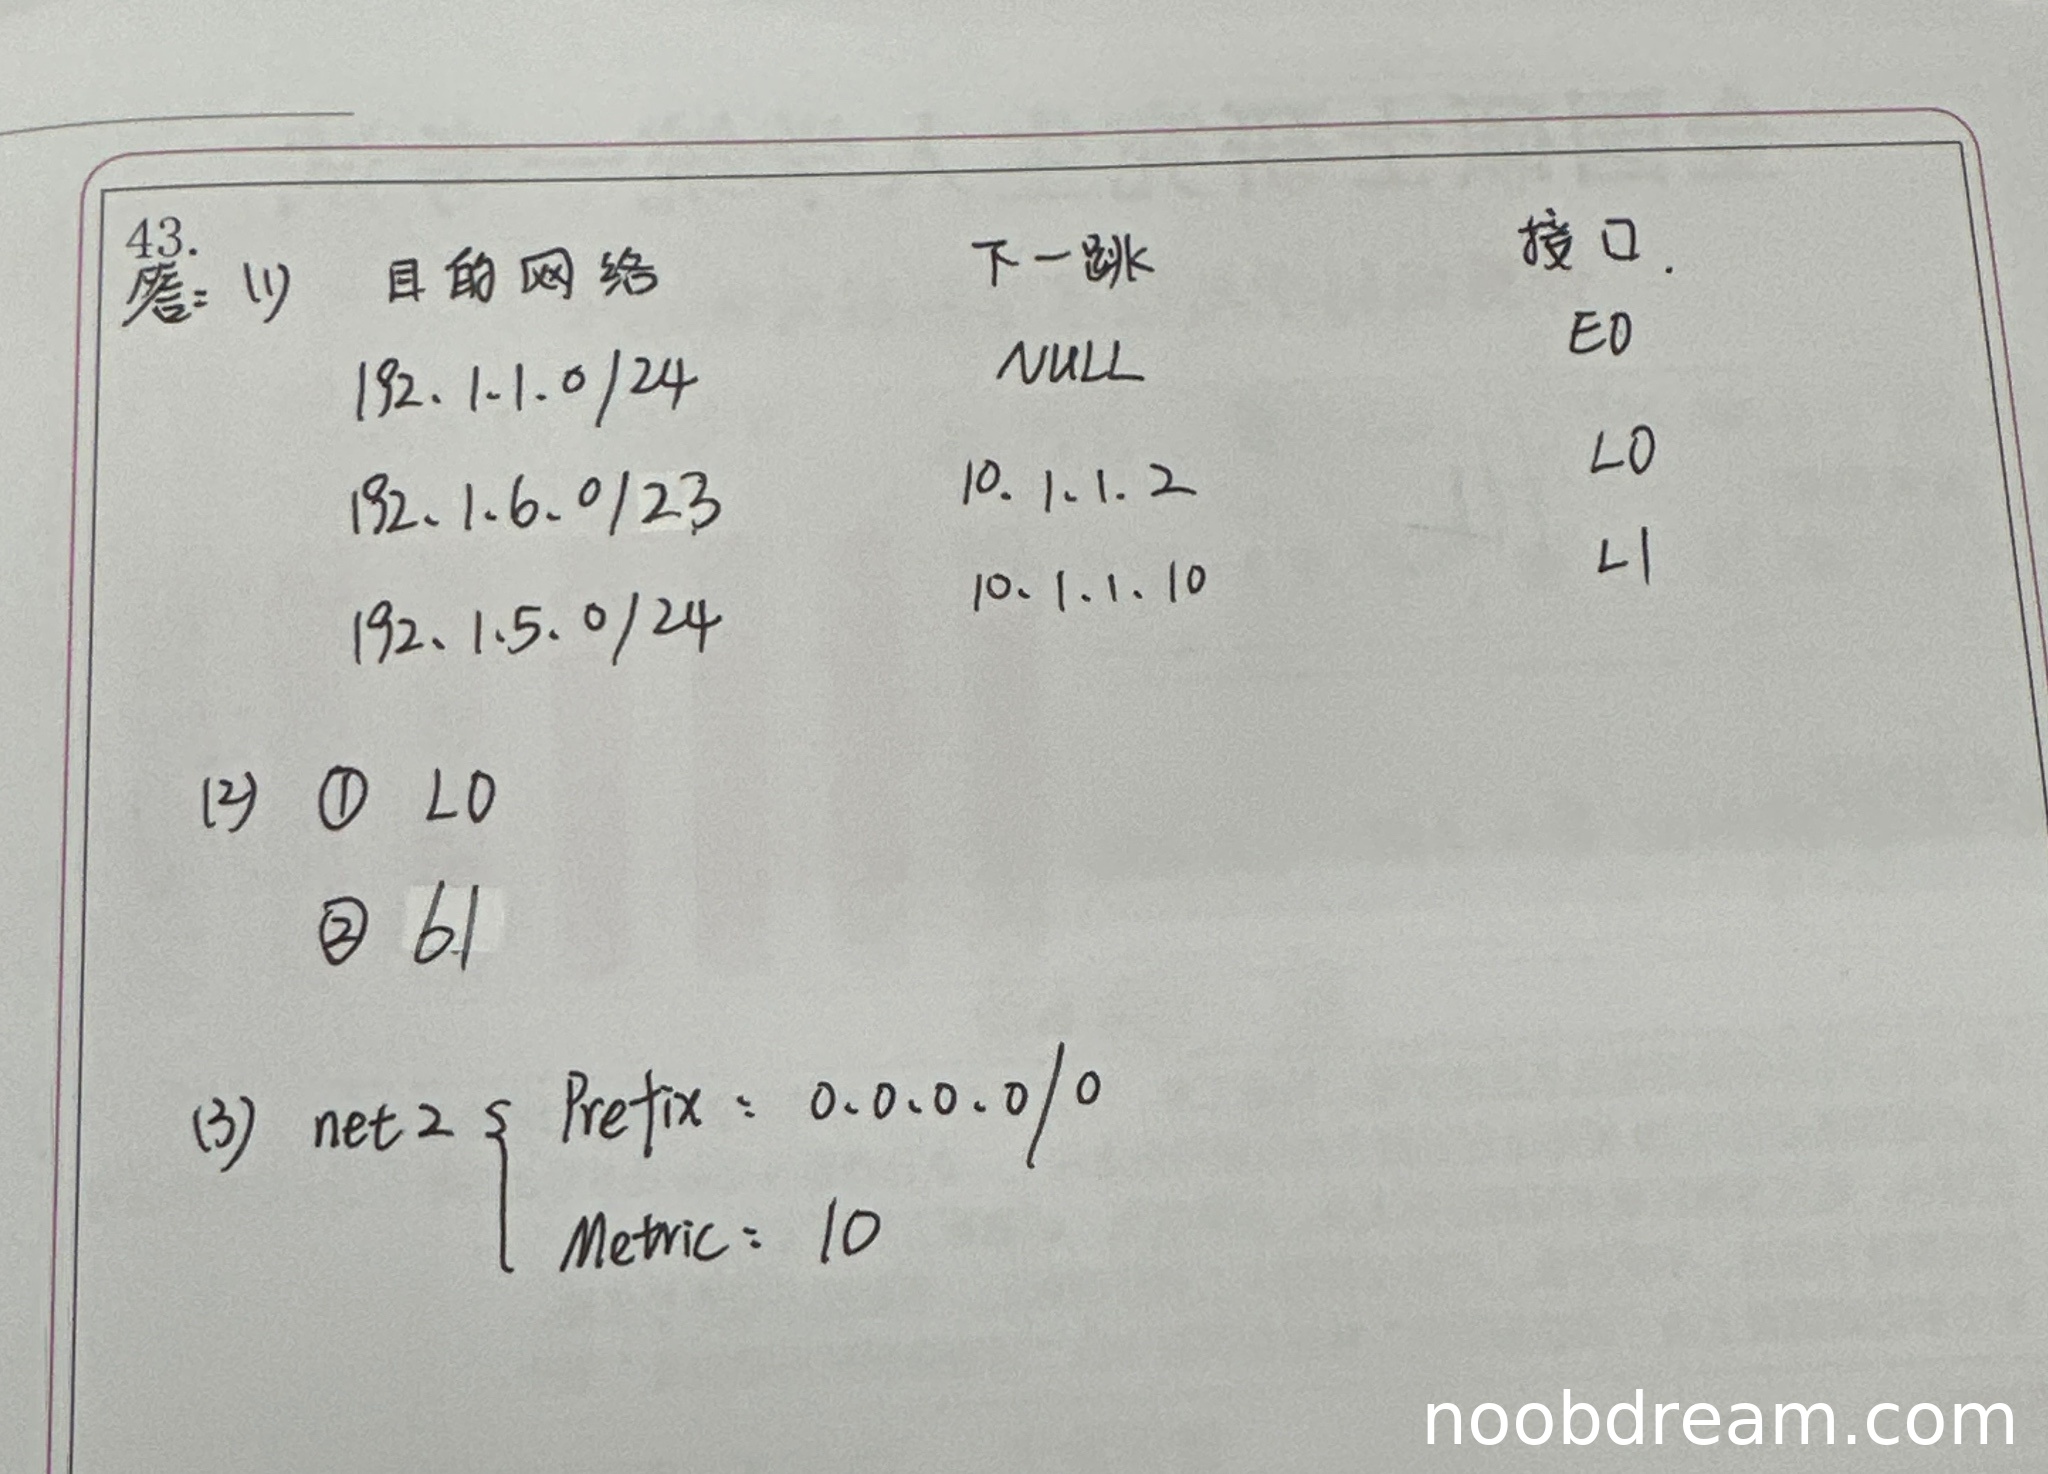 43.
答: (1) 目的网络 下一跳 接口.
192.1.1.0/24 NULL E0
192.1.6.0/23 10.1.1.2 L0
192.1.5.0/24 10.1.1.10 L1
(2) ① L0
② 61
(3) net2 { Prefix: 0.0.0.0/0
Metric: 10
noobdream.com